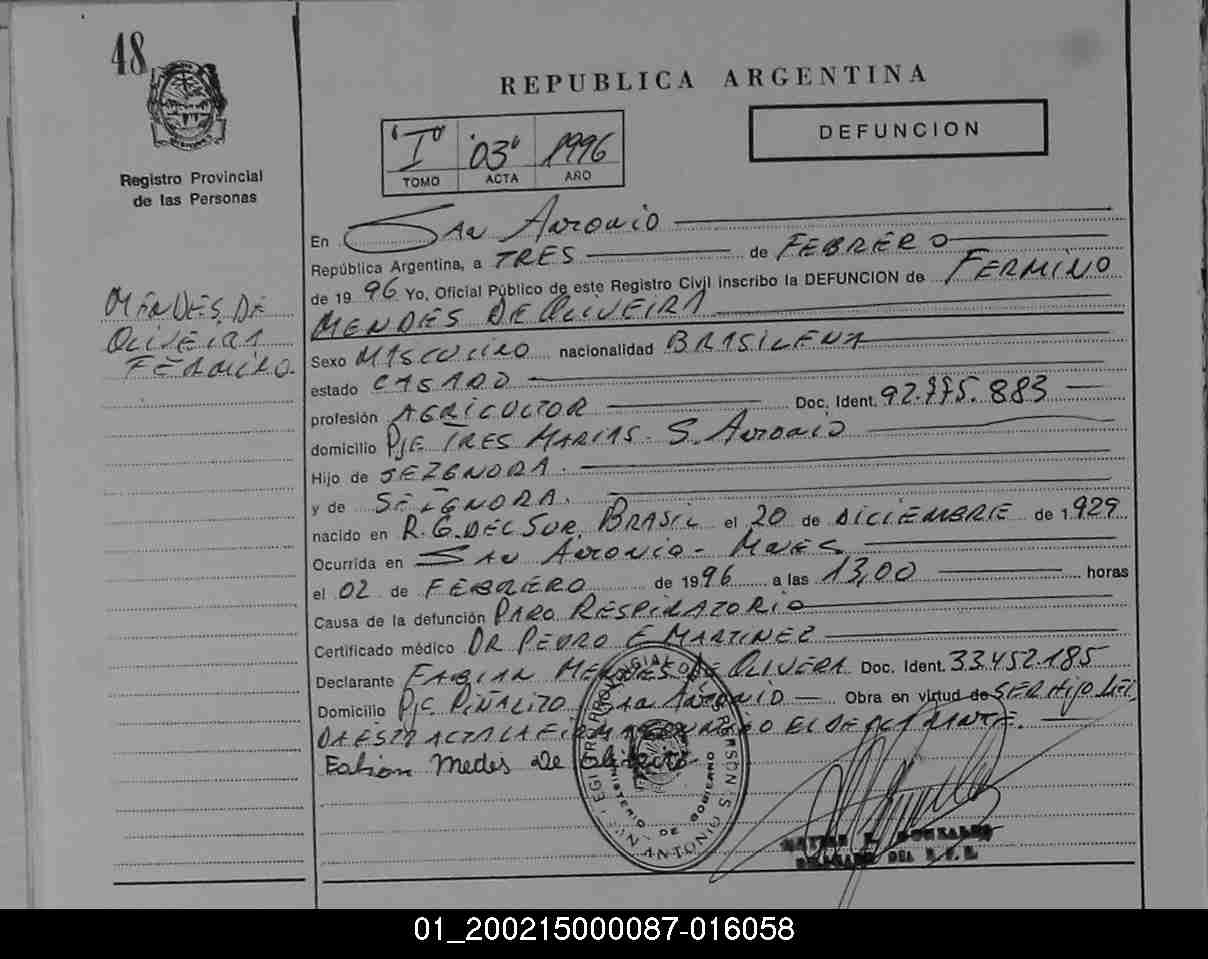 48
REPUBLICA ARGENTINA
DEFUNCION
"I" "03" 1996
TOMO ACTA AÑO
Registro Provincial
de las Personas
MENDES DE
OLIVEIRA
FERMINO.
En SAN ANTONIO
República Argentina, a TRES de FEBRERO
de 1996 Yo, Oficial Público de este Registro Civil inscribo la DEFUNCION de FERMINO
MENDES DE OLIVEIRA
Sexo MASCULINO nacionalidad BRASILENA
estado CASADO
profesión AGRICULTOR Doc. Ident. 92.775.883
domicilio PJE TRES MARIAS - S. ANTONIO
Hijo de SEIGNORA.
y de SEIGNORA.
nacido en R.G. DEL SUR, BRASIL el 20 de DICIEMBRE de 1.929
Ocurrida en SAN ANTONIO - MNES
el 02 de FEBRERO de 1996 a las 13,00 horas
Causa de la defunción PARO RESPIRATORIO
Certificado médico DR PEDRO E MARTINEZ
Declarante FABIAN MENDES DE OLIVERA Doc. Ident. 33.452.185
Domicilio PJE. PIÑALITO SAN ANTONIO Obra en virtud de SER HIJO LEI
DA ESTA ACTA LA FIRMA CONMIGO EL DECLARANTE.
Fabian Medes de
REGISTRO PROVINCIAL DE LAS PERSONAS
MINISTERIO DE GOBIERNO
SAN ANTONIO
GONZALEZ
DELEGADO DEL R.P.P.
01_200215000087-016058